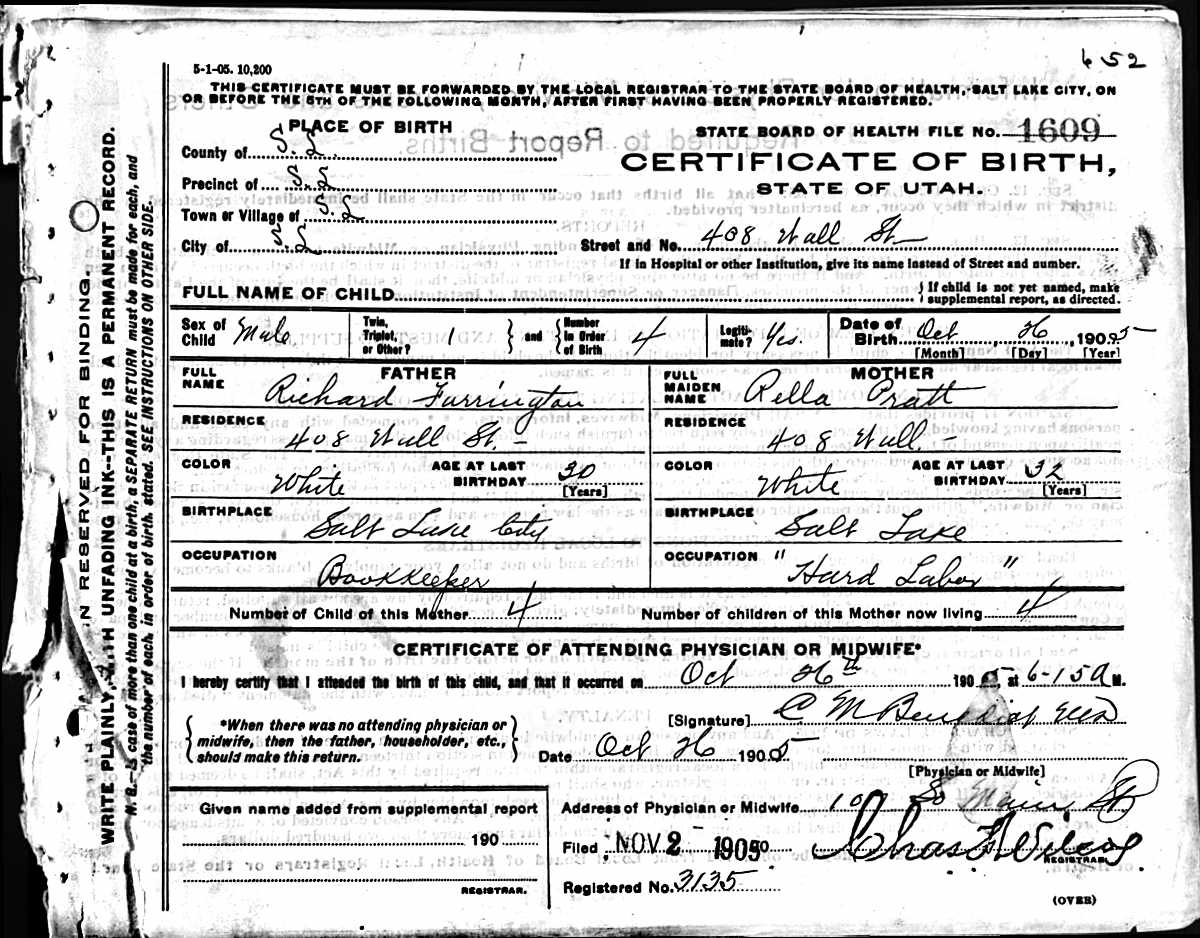 652
5-1-05. 10,200
THIS CERTIFICATE MUST BE FORWARDED BY THE LOCAL REGISTRAR TO THE STATE BOARD OF HEALTH, SALT LAKE CITY, ON
OR BEFORE THE 5TH OF THE FOLLOWING MONTH, AFTER FIRST HAVING BEEN PROPERLY REGISTERED.
PLACE OF BIRTH
STATE BOARD OF HEALTH FILE No. 1609
County of S.L.
CERTIFICATE OF BIRTH,
Precinct of S.L
STATE OF UTAH.
Town or Village of S.L
City of S.L
Street and No. 408 Wall St
If in Hospital or other Institution, give its name instead of Street and number.
FULL NAME OF CHILD
If child is not yet named, make
supplemental report, as directed.
Sex of Child Male
Twin, Triplet, or Other? 1
and Number in Order of Birth 4
Legitimate? Yes.
Date of Birth Oct 26, 1905
[Month] [Day] [Year]
FATHER
FULL NAME Richard Farrington
RESIDENCE 408 Wall St. -
COLOR White
AGE AT LAST BIRTHDAY 30
[Years]
BIRTHPLACE Salt Lake City
OCCUPATION Bookkeeper
MOTHER
FULL MAIDEN NAME Rella Pratt
RESIDENCE 408 Wall. -
COLOR White
AGE AT LAST BIRTHDAY 32
[Years]
BIRTHPLACE Salt Lake
OCCUPATION "Hard Labor"
Number of Child of this Mother 4
Number of children of this Mother now living 4
CERTIFICATE OF ATTENDING PHYSICIAN OR MIDWIFE*
I hereby certify that I attended the birth of this child, and that it occurred on Oct 26th 1905, at 6-15 a M.
*When there was no attending physician or
midwife, then the father, householder, etc.,
should make this return.
[Signature] C M Benedict
Date Oct 26 1905
[Physician or Midwife]
Given name added from supplemental report
190
REGISTRAR.
Address of Physician or Midwife So Main St
Filed NOV 2 1905
REGISTRAR.
Registered No. 3135
(OVER)
N RESERVED FOR BINDING.
WRITE PLAINLY, WITH UNFADING INK--THIS IS A PERMANENT RECORD.
N. B.--In case of more than one child at a birth, a SEPARATE RETURN must be made for each, and
the number of each, in order of birth, stated. SEE INSTRUCTIONS ON OTHER SIDE.